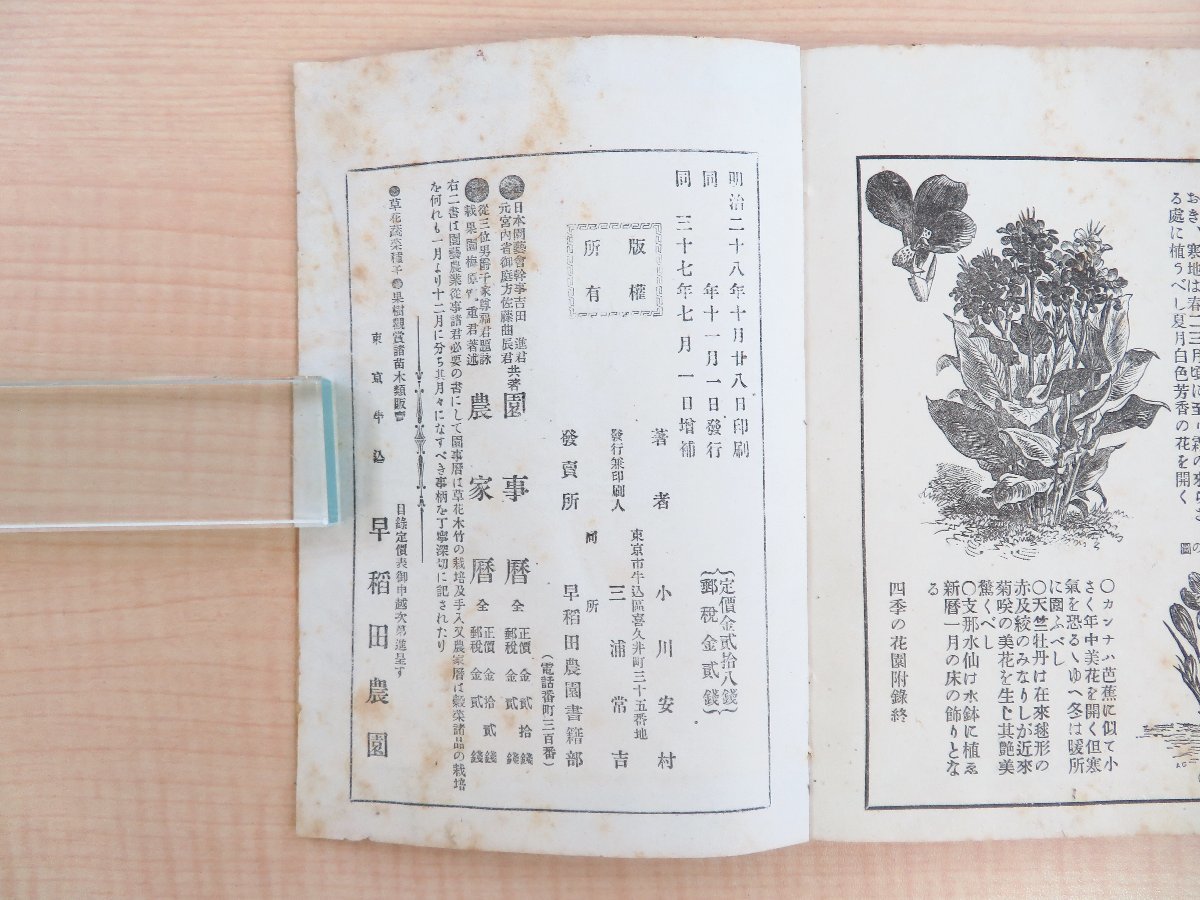 おき、寒地は春一二三月頃に至り霜の來
る處に植うべし夏月白色芳香の花を開く
○カンナハ芭蕉に似て小
さく年中美花を開く但寒
氣を恐るゝゆへ冬は暖所
に圍ふべし
○天竺牡丹は在來毬形の
赤及絞のみなりしが近來
菊咲の美花を生じ其艶美
驚くべし
○支那水仙は水鉢に植ゑ
新暦一月の床の飾りとな
る
四季の花園附錄終
明治二十八年十月廿八日印刷
同 年十一月一日發行
同 三十七年七月一日增補
版權
所有
定價金貳拾八錢
郵税金貳錢
著者 小川安村
東京市牛込區喜久井町三十五番地
發行兼印刷人 三浦常吉
同所
發賣所 早稻田農園書籍部
(電話番町三百番)
日本園藝會幹事吉田進君
元宮内省御庭方佐藤曲辰君 共著
園事曆 全 正價金貳拾錢 郵税金貳錢
從三位男爵千家尊福君題詠
栽果園梅原 重君著述
農家曆 全 正價金拾貳錢 郵税金貳錢
右二書は園藝農業從事諸君必要の書にして園事曆は草花木竹の栽培及手入又農家曆は穀菜諸品の栽培
を何れも一月より十二月に分ち其月々になすべき事柄を丁寧深切に記されたり
●草花蔬菜種子●果樹觀賞諸苗木類販賣 目錄定價表御申越次第進呈す
東京牛込 早稻田農園